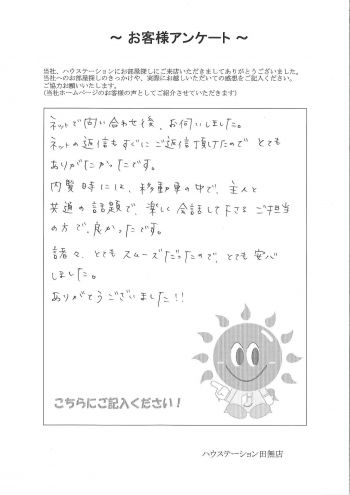 ～ お客様アンケート ～
当社、ハウステーションにお部屋探しにご来店いただきましてありがとうございました。
当社へのお部屋探しのきっかけや、実際にお越しいただいての感想をご記入ください。
ご協力お願いいたします。
(当社ホームページのお客様の声としてご紹介させていただきます)
ネットで問い合わせ後、お伺いしました。
ネットの返信もすぐにご返信頂けたので とても
ありがたかったです。
内覧時には、移動車の中で、主人と
共通の話題で、楽しく会話して下さる ご担当
の方で、良かったです。
諸々、とてもスムーズだったので、とても 安心
しました。
ありがとうございました!!
こちらにご記入ください！
ハウステーション田無店